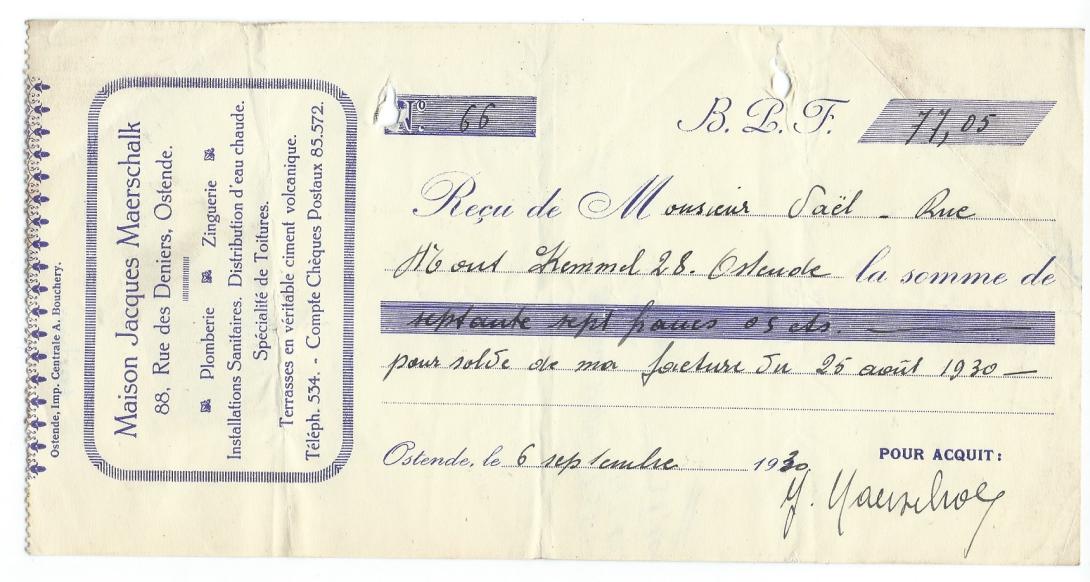 Ostende, Imp. Centrale A. Bouchery.
Maison Jacques Maerschalk
88, Rue des Deniers, Ostende.
Plomberie Zinguerie
Installations Sanitaires. Distribution d'eau chaude.
Spécialité de Toitures.
Terrasses en véritable ciment volcanique.
Téléph. 534. - Compte Chèques Postaux 85.572.
No. 66 B. P. F. 77,05
Reçu de Monsieur Saël - Rue
Mont Kemmel 28. Ostende la somme de
septante sept francs 05 cts.
pour solde de ma facture du 25 août 1930 -
Ostende, le 6 septembre 1930 POUR ACQUIT:
J. Maerschalk